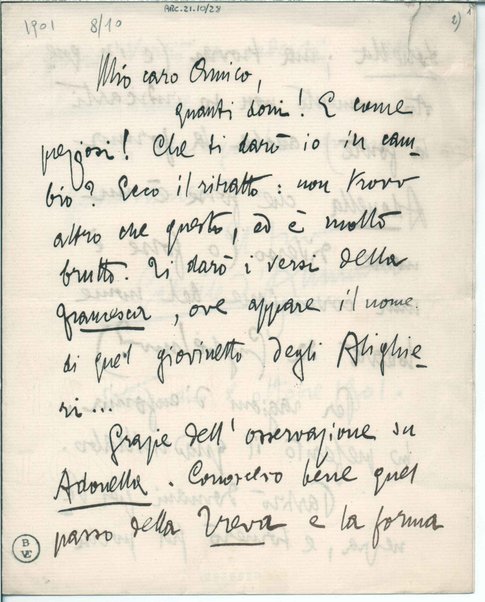 ARC.21.10/28
1901 8/10
2)
Mio caro Amico,
quanti doni! E come
preziosi! Che ti darò io in cam-
bio? Ecco il ritratto: non trovo
altro che questo, ed è molto
brutto. Ti darò i versi della
Francesca, ove appare il nome
di quel giovinetto degli Alighie-
ri...
Grazie dell'osservazione su
Adonella. Conoscevo bene quel
passo della Treva e la forma
BVE